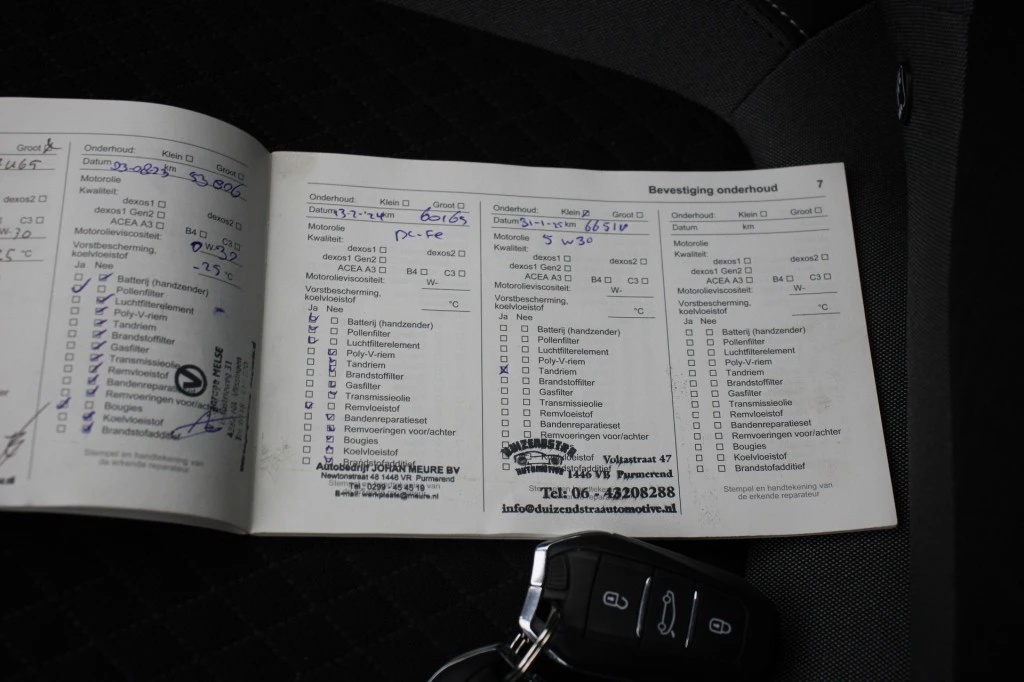 Groot
W-30
C3
5 °C
Onderhoud: Klein Groot
Datum 03-0823 km 53 806
Motorolie
Kwaliteit:
dexos1 dexos2
dexos1 Gen2
ACEA A3 B4 C3
Motorolieviscositeit: 0 W-
Vorstbescherming,
koelvloeistof -25 °C
Ja Nee
Batterij (handzender)
Pollenfilter
Luchtfilterelement
Poly-V-riem
Tandriem
Brandstoffilter
Gasfilter
Transmissieolie
Remvloeistof
Bandenreparatieset
Remvoeringen voor/achter
Bougies
Koelvloeistof
Brandstofadditief
Stempel en handtekening van
de erkende reparateur
Bevestiging onderhoud 7
Onderhoud: Klein Groot
Datum 13-2-'24 km 60169
Motorolie
Kwaliteit:
dexos1 dexos2
dexos1 Gen2
ACEA A3 B4 C3
Motorolieviscositeit:
W-
Vorstbescherming,
koelvloeistof °C
Ja Nee
Batterij (handzender)
Pollenfilter
Luchtfilterelement
Poly-V-riem
Tandriem
Brandstoffilter
Gasfilter
Transmissieolie
Remvloeistof
Bandenreparatieset
Remvoeringen voor/achter
Bougies
Koelvloeistof
Brandstofadditief
Autobedrijf JOHAN MEURE BV
Newtonstraat 48 1446 VR Purmerend
Tel.: 0299 - 45 45 19
E-mail: werkplaats@meure.nl
Onderhoud: Klein Groot
Datum 31-1-25 km
Motorolie 5 W30
Kwaliteit:
dexos1 dexos2
dexos1 Gen2
ACEA A3 B4 C3
Motorolieviscositeit:
W-
Vorstbescherming,
koelvloeistof °C
Ja Nee
Batterij (handzender)
Pollenfilter
Luchtfilterelement
Poly-V-riem
Tandriem
Brandstoffilter
Gasfilter
Transmissieolie
Remvloeistof
Bandenreparatieset
Remvoeringen voor/achter
Bougies
Koelvloeistof
Brandstofadditief
DUIZENDSTRA
AUTOMOTIVE
Voltastraat 47
1446 VB Purmerend
Tel: 06 - 43208288
info@duizendstraautomotive.nl
Onderhoud: Klein Groot
Datum km
Motorolie
Kwaliteit:
dexos1 dexos2
dexos1 Gen2
ACEA A3 B4 C3
Motorolieviscositeit:
W-
Vorstbescherming,
koelvloeistof °C
Ja Nee
Batterij (handzender)
Pollenfilter
Luchtfilterelement
Poly-V-riem
Tandriem
Brandstoffilter
Gasfilter
Transmissieolie
Remvloeistof
Bandenreparatieset
Remvoeringen voor/achter
Bougies
Koelvloeistof
Brandstofadditief
Stempel en handtekening van
de erkende reparateur